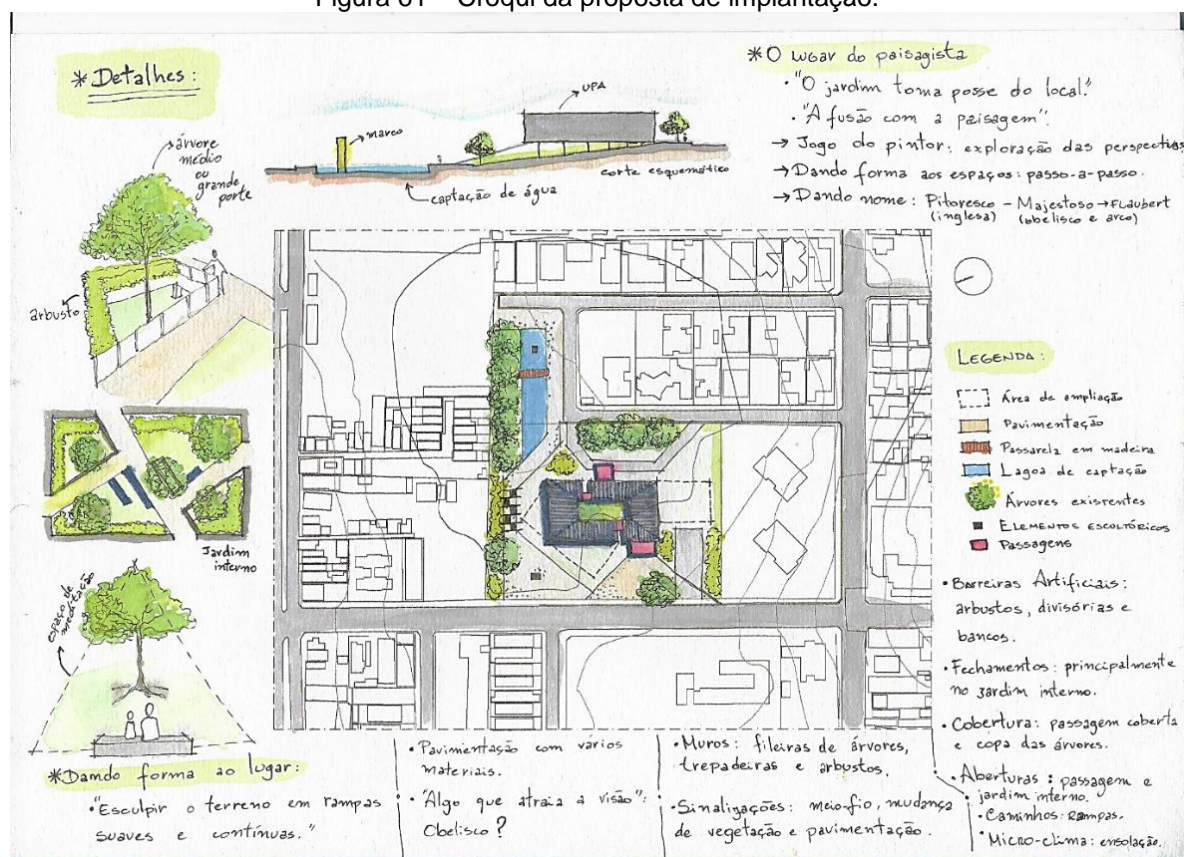 Figura 61 – Croqui da proposta de implantação.
* Detalhes:
árvore
médio
ou
grande
porte
arbusto
Jardim
interno
espaço de
meditação
marco
UPA
corte esquemático
captação de água
* O lugar do paisagista
• "O jardim toma posse do local."
• "A fusão com a paisagem".
→ Jogo do pintor: exploração das perspectivas
→ Dando forma aos espaços: passo-a-passo.
→ Dando nome: Pitoresco - Majestoso → Flaubert
(inglesa) (obelisco e arco)
LEGENDA:
Área de ampliação
Pavimentação
Passarela em madeira
Lagoa de captação
Árvores existentes
ELEMENTOS ESCULTÓRICOS
Passagens
• Barreiras Artificiais:
arbustos, divisórias e
bancos.
• Fechamentos: principalmente
no jardim interno.
• Cobertura: passagem coberta
e copa das árvores.
• Aberturas: passagem e
jardim interno.
• Caminhos: Rampas.
• Micro-clima: ensolação.
* Dando forma ao lugar:
• "Esculpir o terreno em rampas
suaves e contínuas."
• Pavimentação com vários
materiais.
• "Algo que atraia a visão":
Obelisco?
• Muros: fileiras de árvores,
trepadeiras e arbustos.
• Sinalizações: meio-fio, mudança
de vegetação e pavimentação.